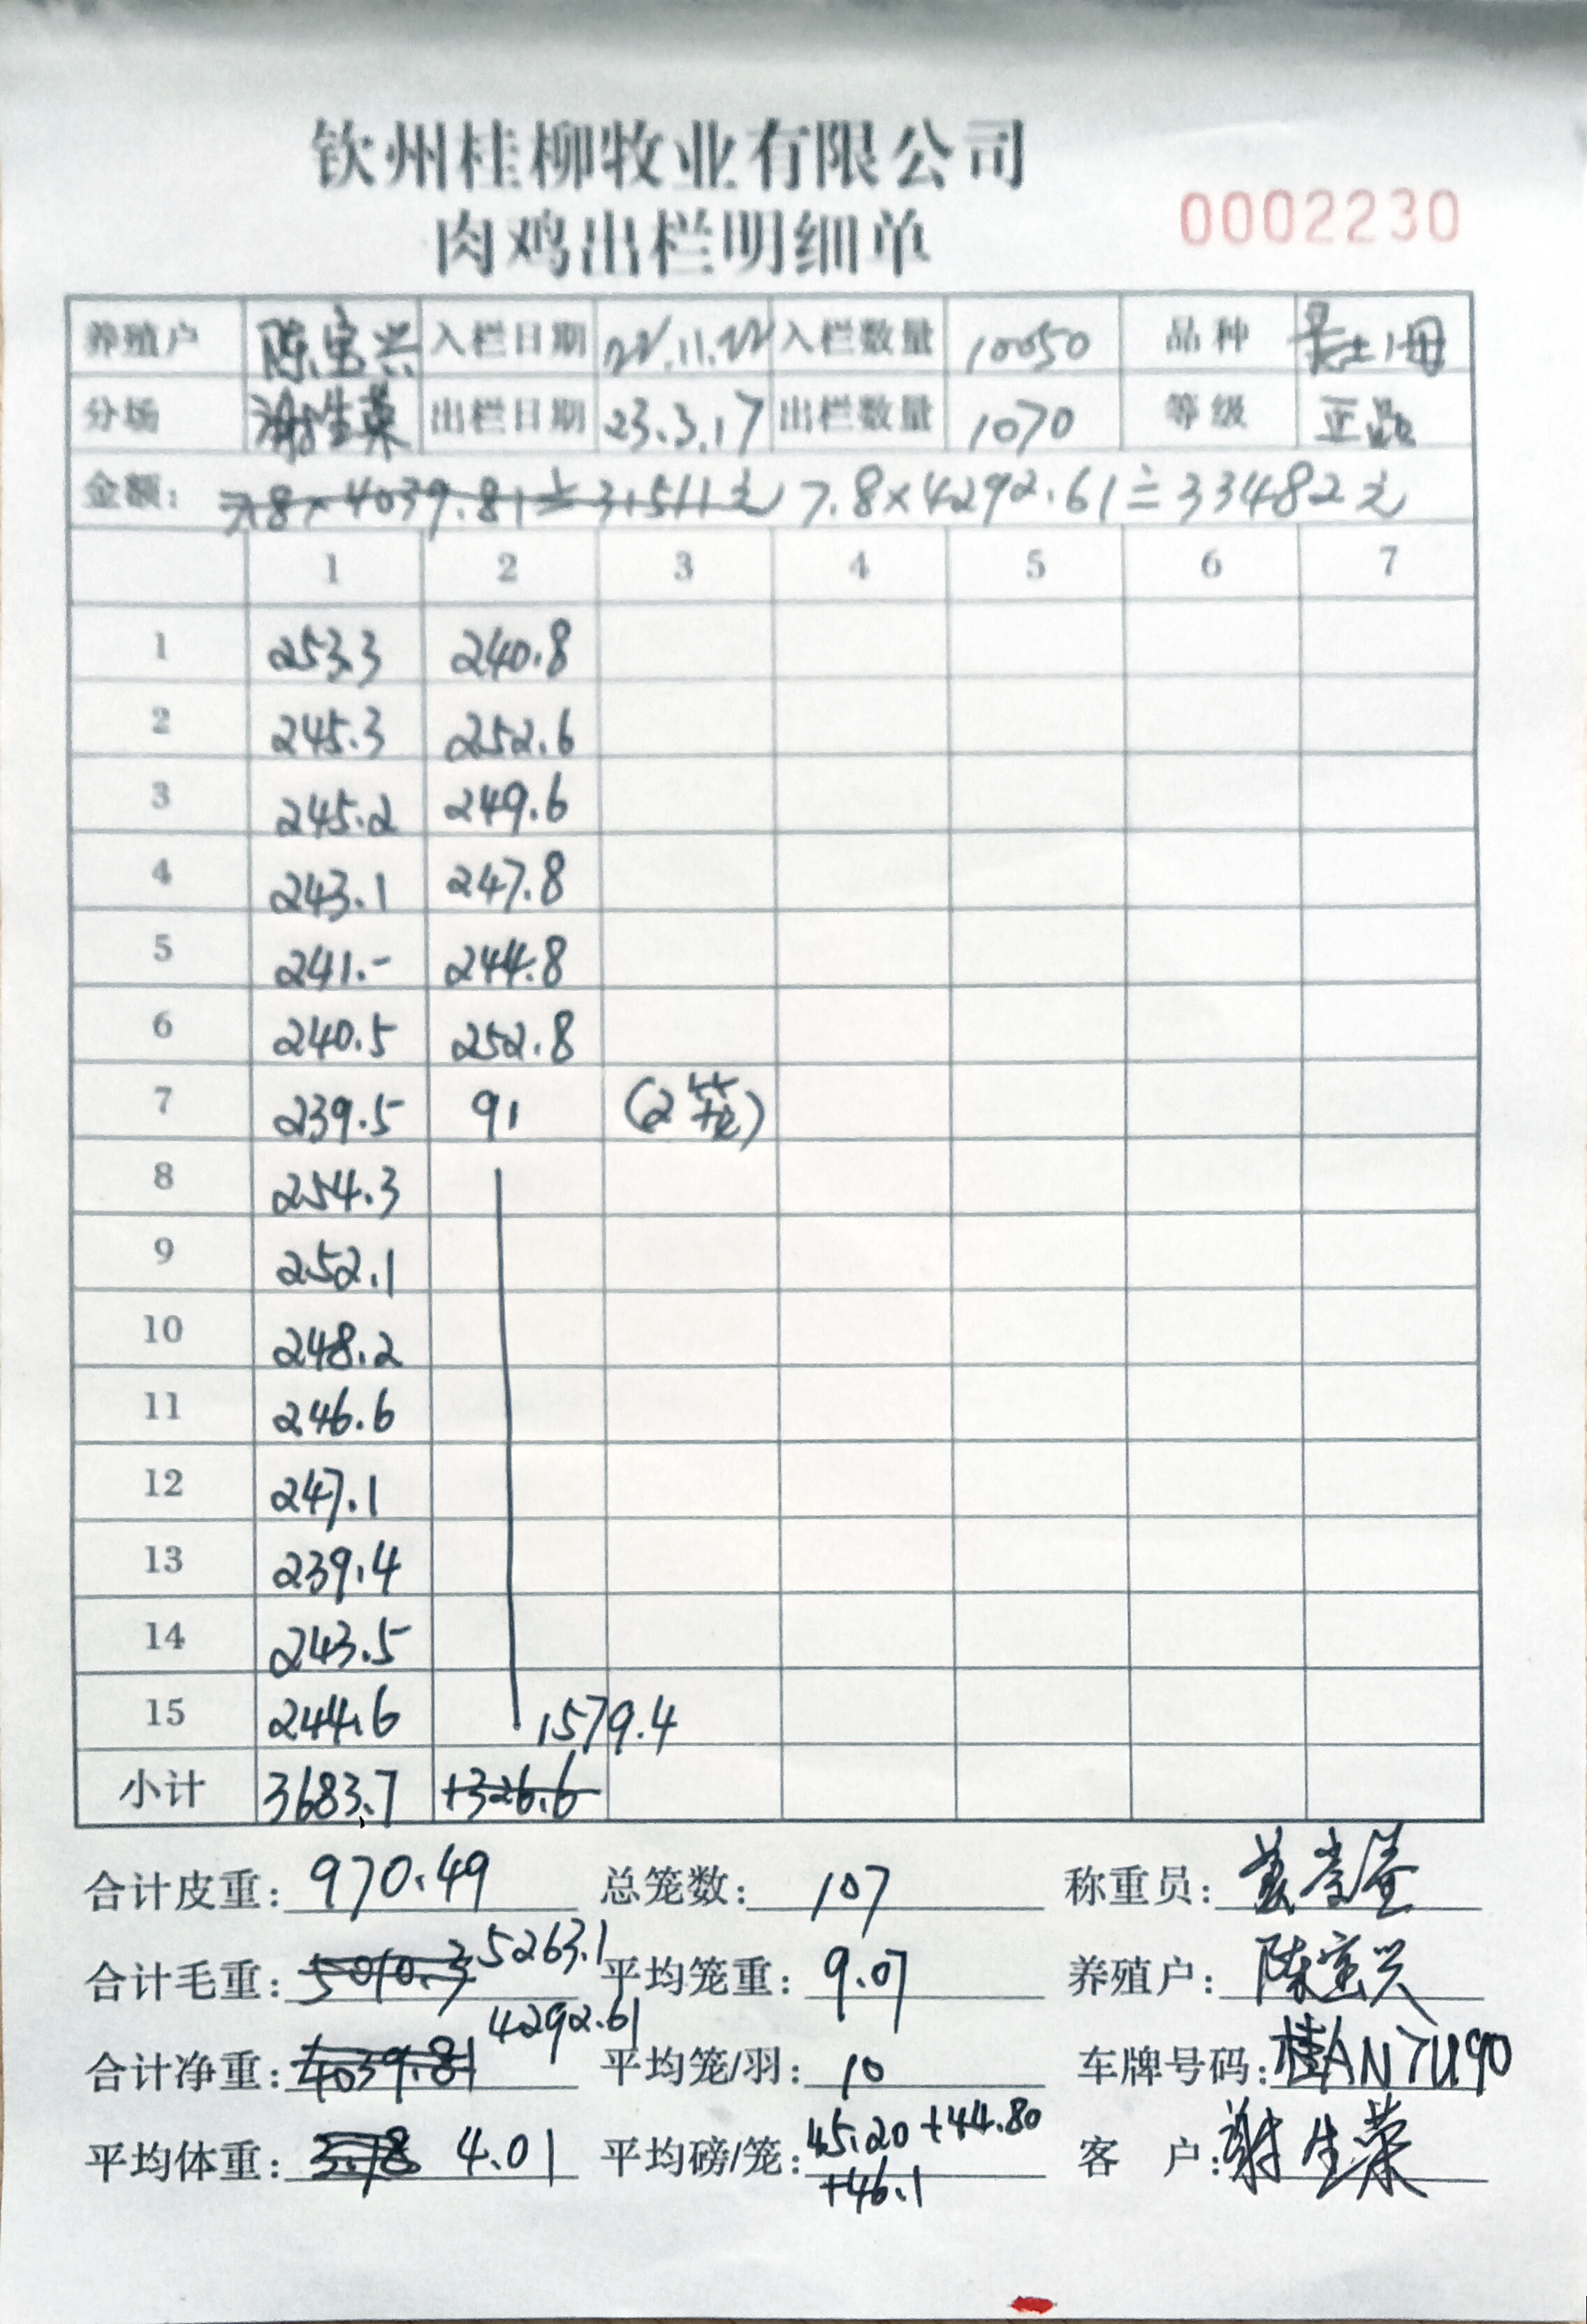 钦州桂柳牧业有限公司
肉鸡出栏明细单 0002230
养殖户 陈宝兴 入栏日期 22.11.22 入栏数量 10050 品种 土1母
分场 谢生荣 出栏日期 23.3.17 出栏数量 1070 等级
金额： 7.8×4039.81≐31511元 7.8×4292.61≐33482元
1 2 3 4 5 6 7
1 253.3 240.8
2 245.3 252.6
3 245.2 249.6
4 243.1 247.8
5 241.- 244.8
6 240.5 252.8
7 239.5 91 (2笼)
8 254.3
9 252.1
10 248.2
11 246.6
12 247.1
13 239.4
14 243.5
15 244.6 1579.4
小计 3683.7 1326.6
合计皮重： 970.49 总笼数： 107 称重员：
合计毛重： 5010.3 5263.1 平均笼重： 9.07 养殖户： 陈宝兴
合计净重： 4039.81 4292.61 平均笼/羽： 10 车牌号码： 桂AN7U90
平均体重： 3.78 4.01 平均磅/笼： 45.20+44.80 客 户： 谢生荣
+46.1